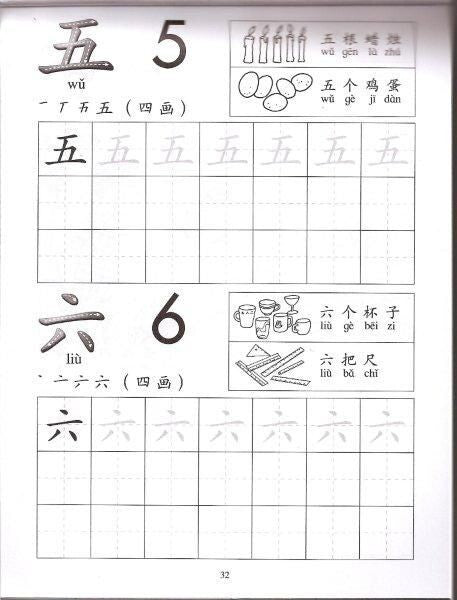 五 5
wǔ
一 丆 五 五 (四画)
五根蜡烛
wǔ gēn là zhú
五个鸡蛋
wǔ gè jī dàn
五 五 五 五 五 五 五
六 6
liù
丶 亠 六 六 (四画)
六个杯子
liù gè bēi zi
六把尺
liù bǎ chǐ
六 六 六 六 六 六 六
32